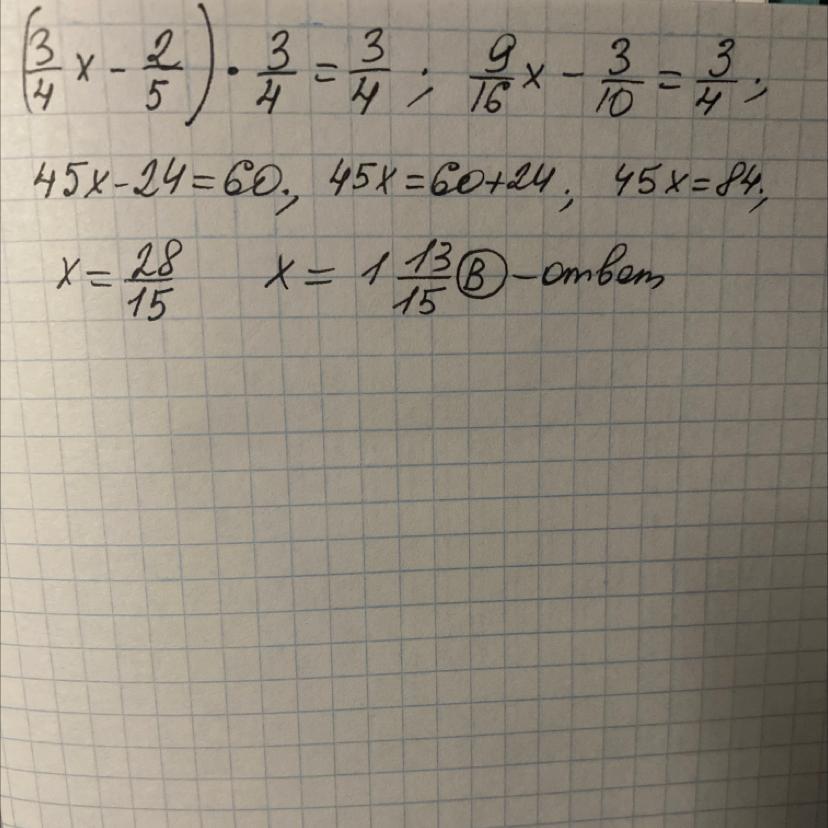 (3/4 x - 2/5) • 3/4 = 3/4 ; 9/16 x - 3/10 = 3/4 ;
45x-24=60; 45x=60+24; 45x=84;
x = 28/15 x = 1 13/15 (В) - ответ